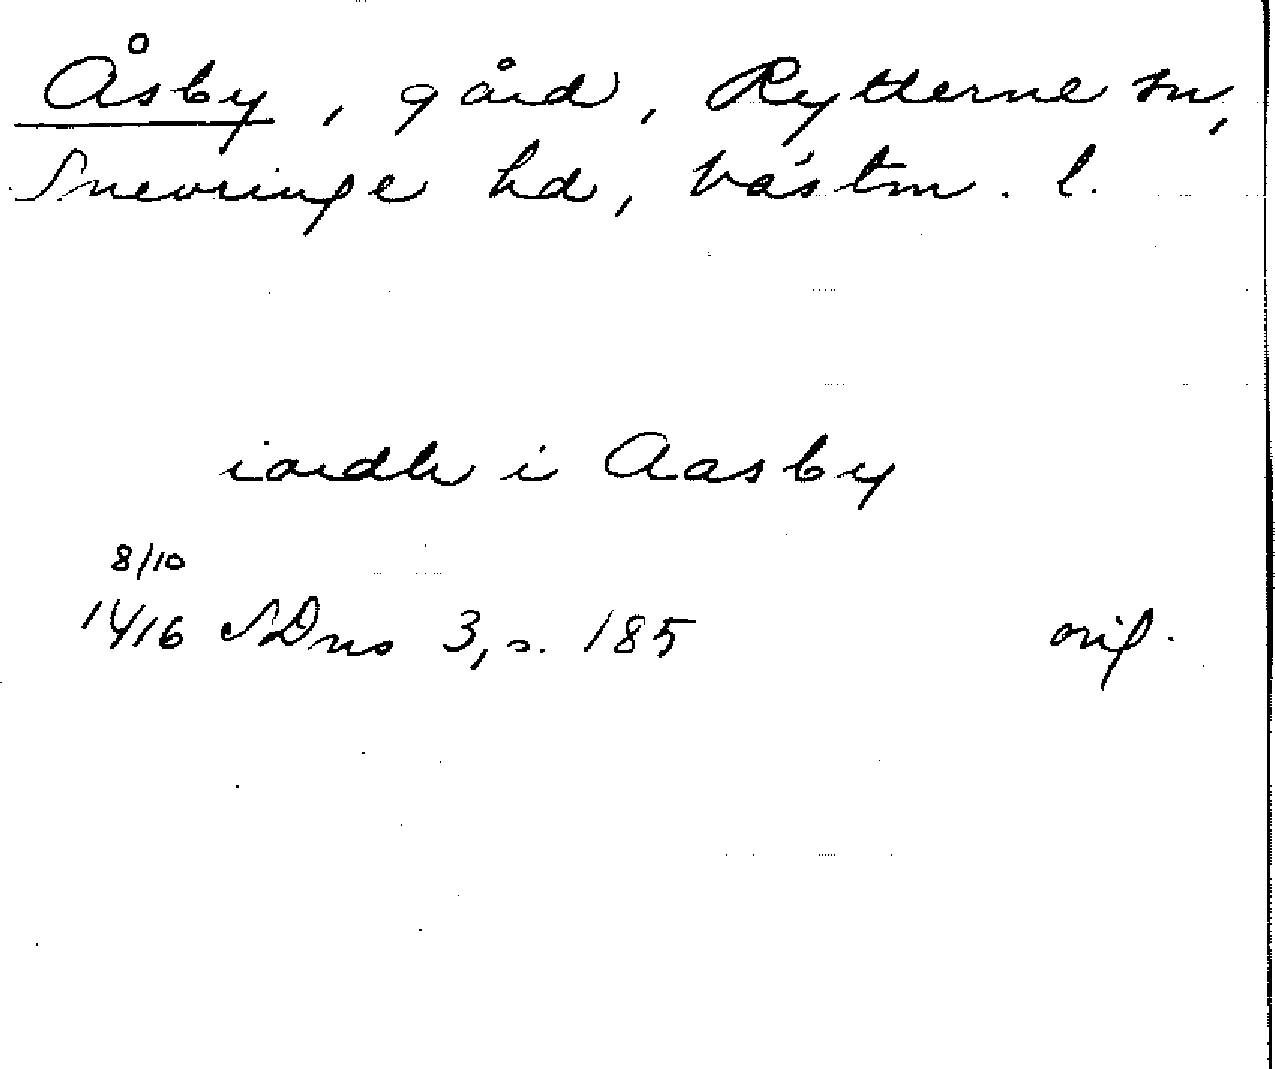 Åsby, gård, Rytterne sn,
Snevringe hd, Västm. l.
iordh i Aasby
8/10
1416 SDns 3, s. 185 orig.